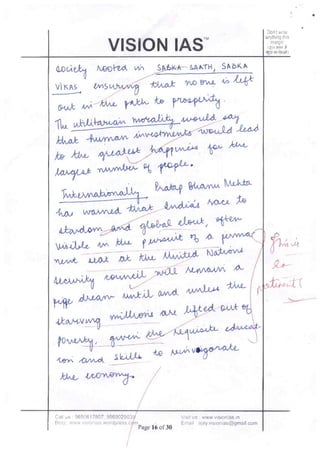 VISION IAS™
Don't write
anything this
margin
society rooted in SABKA SAATH, SABKA
VIKAS ensuring that no one is left
out in the path to prosperity.
The utilitarian morality would say
that human investments would lead
to the greatest happiness for the
largest number of people.
Internationally Pratap Bhanu Mehta
has warned that India's race to
stardom and global clout, often
visible in the pursuit of a perma
nent seat at the United Nations
Security council will remain a
pipe dream until and unless the
starving millions are lifted out of
poverty, given the requisite educat
ion and skills to reinvigorate
the economy.
Call us : 9650617807, 9968029039
Visit us : www.visionias.in
Blog: www.visionias.wordpress.com
Page 16 of 30
Email : ajay.visionias@gmail.com